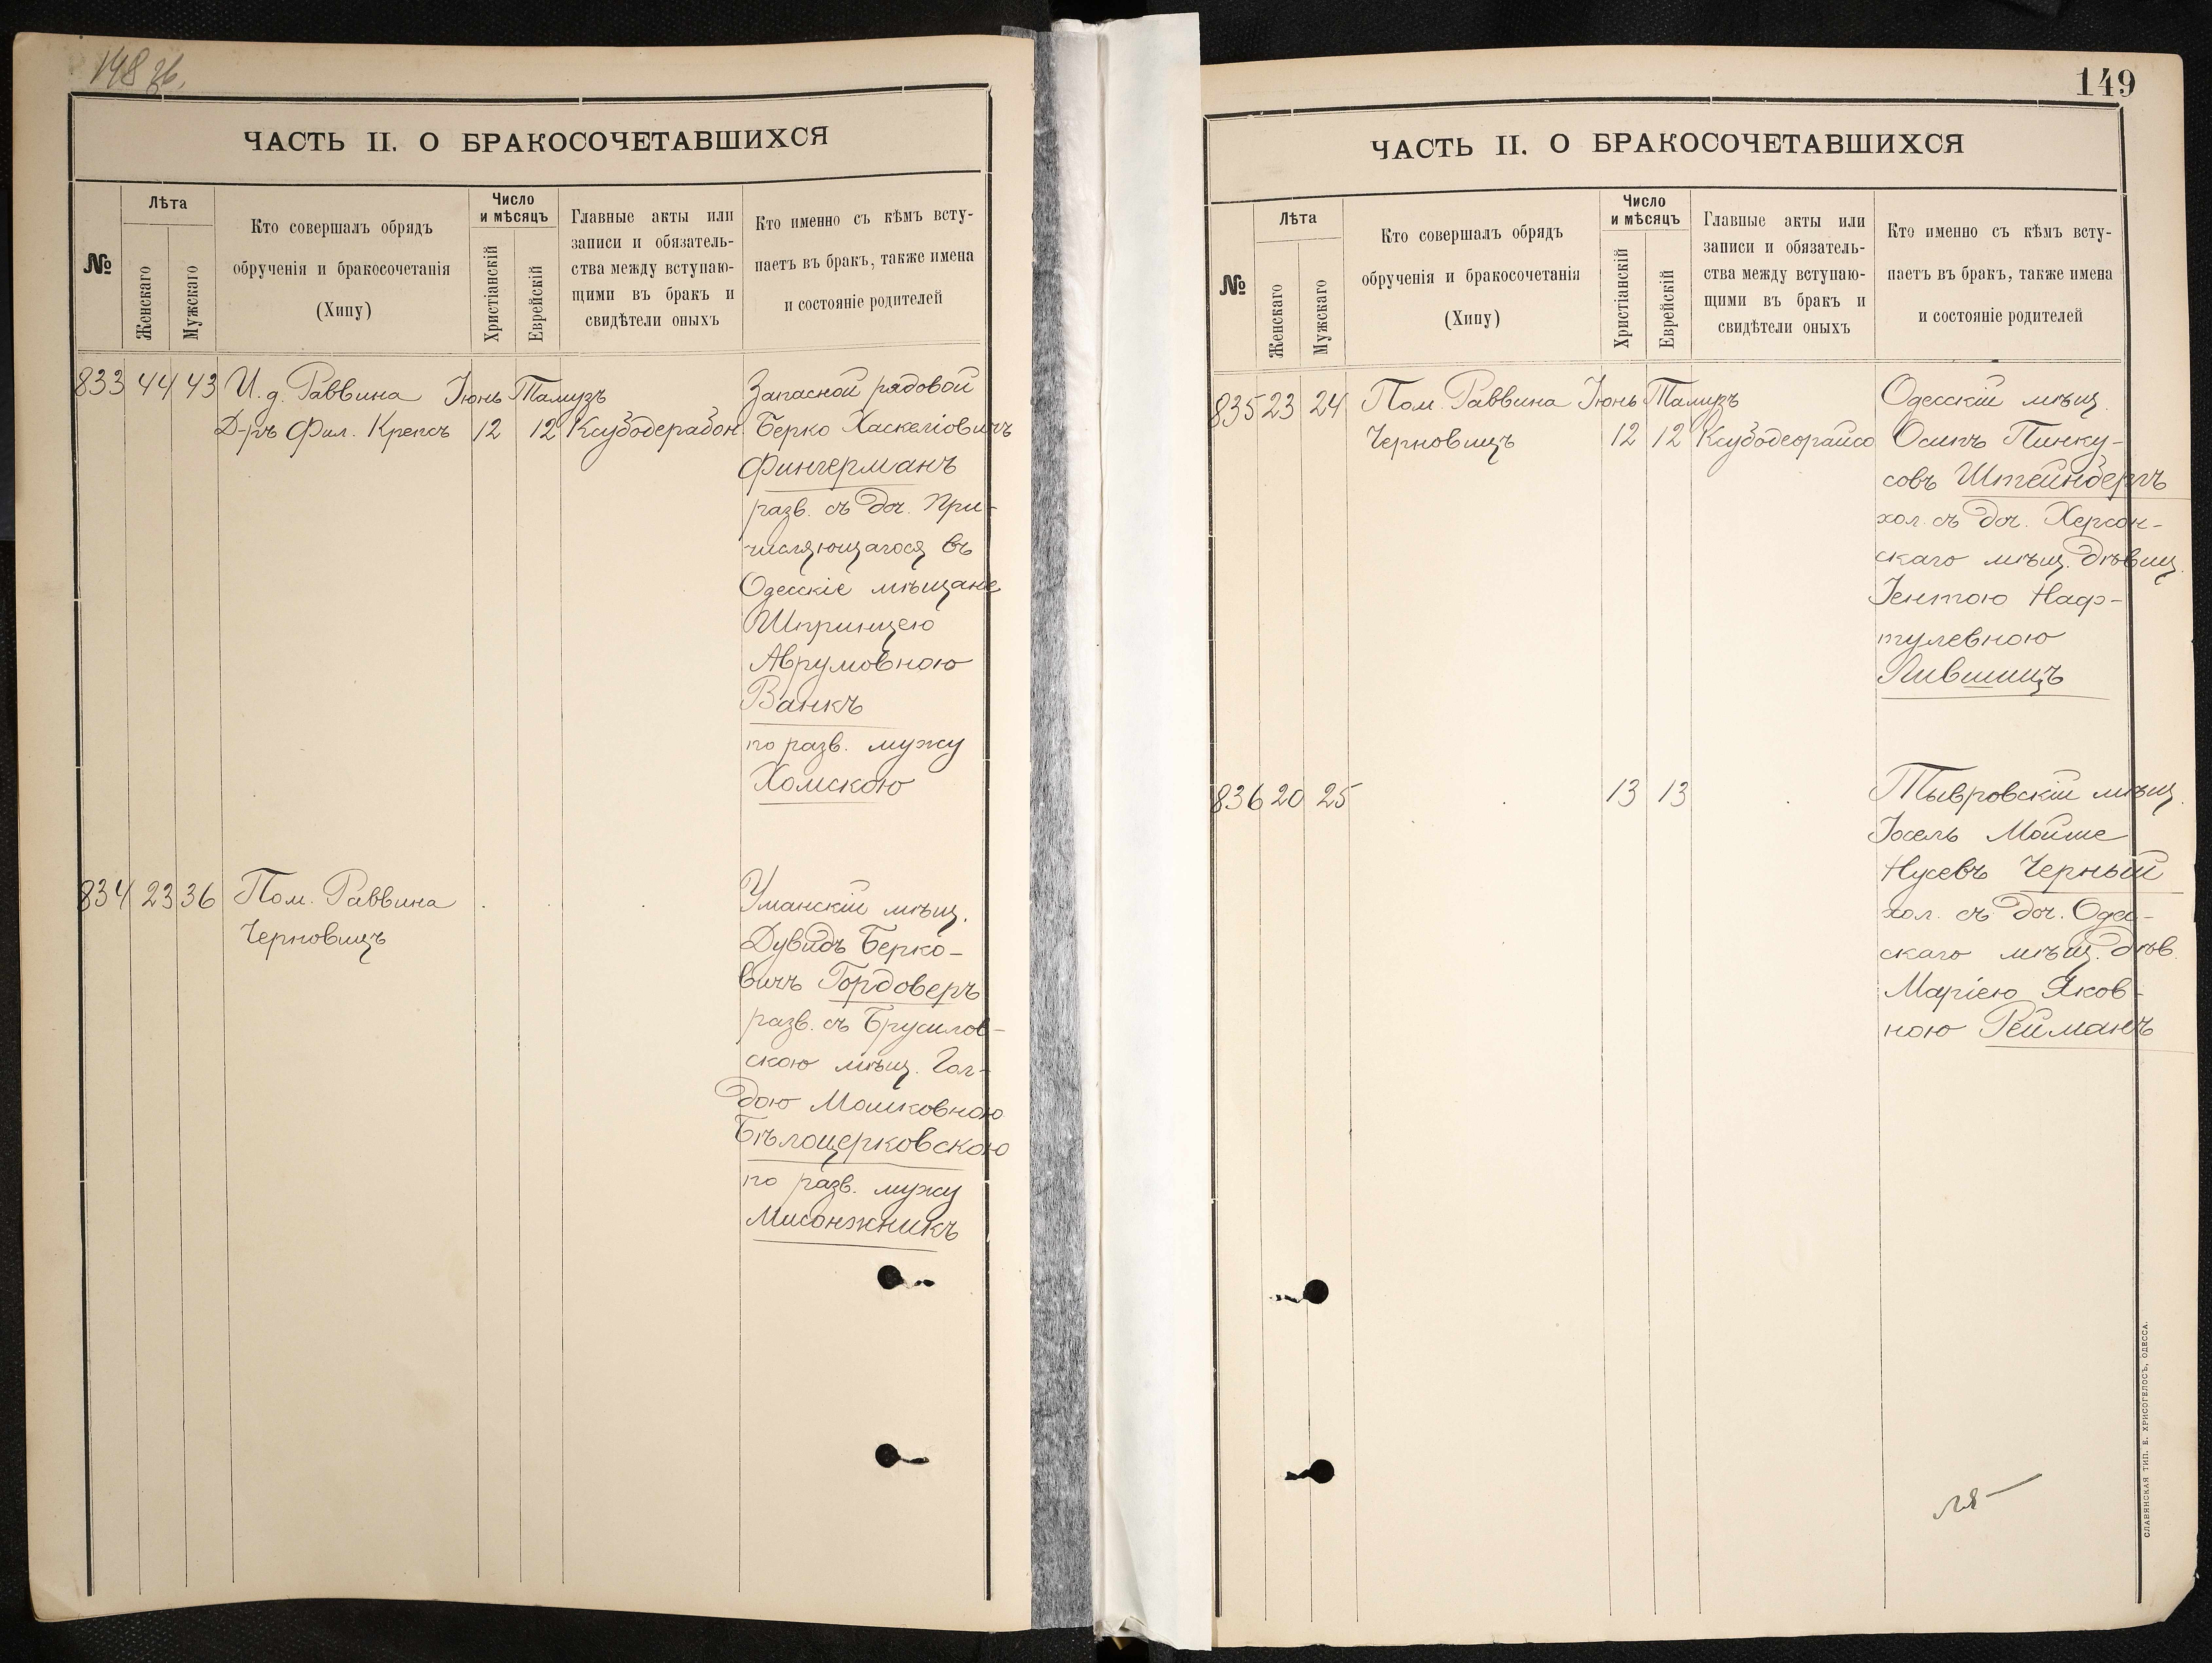 148 об.
ЧАСТЬ II. О БРАКОСОЧЕТАВШИХСЯ
№
Лѣта
Женскаго
Мужскаго
Кто совершалъ обрядъ
обрученія и бракосочетанія
(Хипу)
Число
и мѣсяцъ
Христіанскій
Еврейскій
Главные акты или
записи и обязатель-
ства между вступаю-
щими въ бракъ и
свидѣтели оныхъ
Кто именно съ кѣмъ всту-
паетъ въ бракъ, также имена
и состояніе родителей
833 44 43 И. д. Раввина Іюнь Тамузъ
Д-ръ Фил. Крепсъ 12 12 Ксубодерабон.
Запасной рядовой
Берко Хаскеліовичъ
Фингерманъ
разв. съ доч. При-
числяющагося въ
Одесскіе мѣщане
Шпринцею
Аврумовною
Ванкъ
по разв. мужу
Хомскою
834 23 36 Пом. Раввина
Черновицъ
Уманскій мѣщ.
Дувидъ Берко-
вичъ Гордоверъ
разв. съ Брусилов-
скою мѣщ. Гол-
дою Мошковною
Бѣлоцерковскою
по разв. мужу
Мисонжникъ
149
ЧАСТЬ II. О БРАКОСОЧЕТАВШИХСЯ
№
Лѣта
Женскаго
Мужскаго
Кто совершалъ обрядъ
обрученія и бракосочетанія
(Хипу)
Число
и мѣсяцъ
Христіанскій
Еврейскій
Главные акты или
записи и обязатель-
ства между вступаю-
щими въ бракъ и
свидѣтели оныхъ
Кто именно съ кѣмъ всту-
паетъ въ бракъ, также имена
и состояніе родителей
835 23 24 Пом. Раввина Іюнь Тамузъ
Черновицъ 12 12 Ксубодеорайсо
Одесскій мѣщ.
Осипъ Пинку-
совъ Штейнбергъ
хол. съ доч. Херсон-
скаго мѣщ. дѣвиц.
Гентою Наф-
тулевною
Лившицъ
836 20 25 13 13
Тывровскій мѣщ.
Іосель Мойше
Нусевъ Черный
хол. съ доч. Одес-
скаго мѣщ. дѣв.
Маріею Яков-
ною Рейманъ
СЛАВЯНСКАЯ ТИП. Е. ХРИСОГЕЛОСЪ, ОДЕССА.